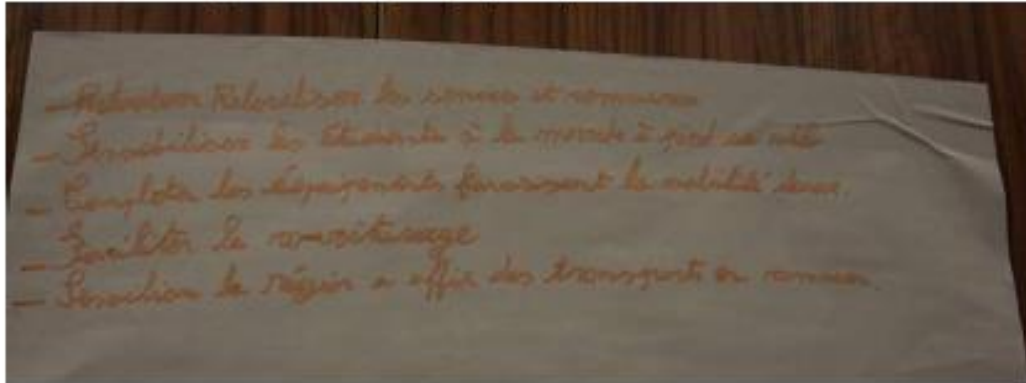 - Relocaliser les services et commerces
- Sensibiliser les à la marche à pied
- les équipements favorisant la mobilité douce.
- Faciliter le covoiturage
- la région a offrir des transports en commun.